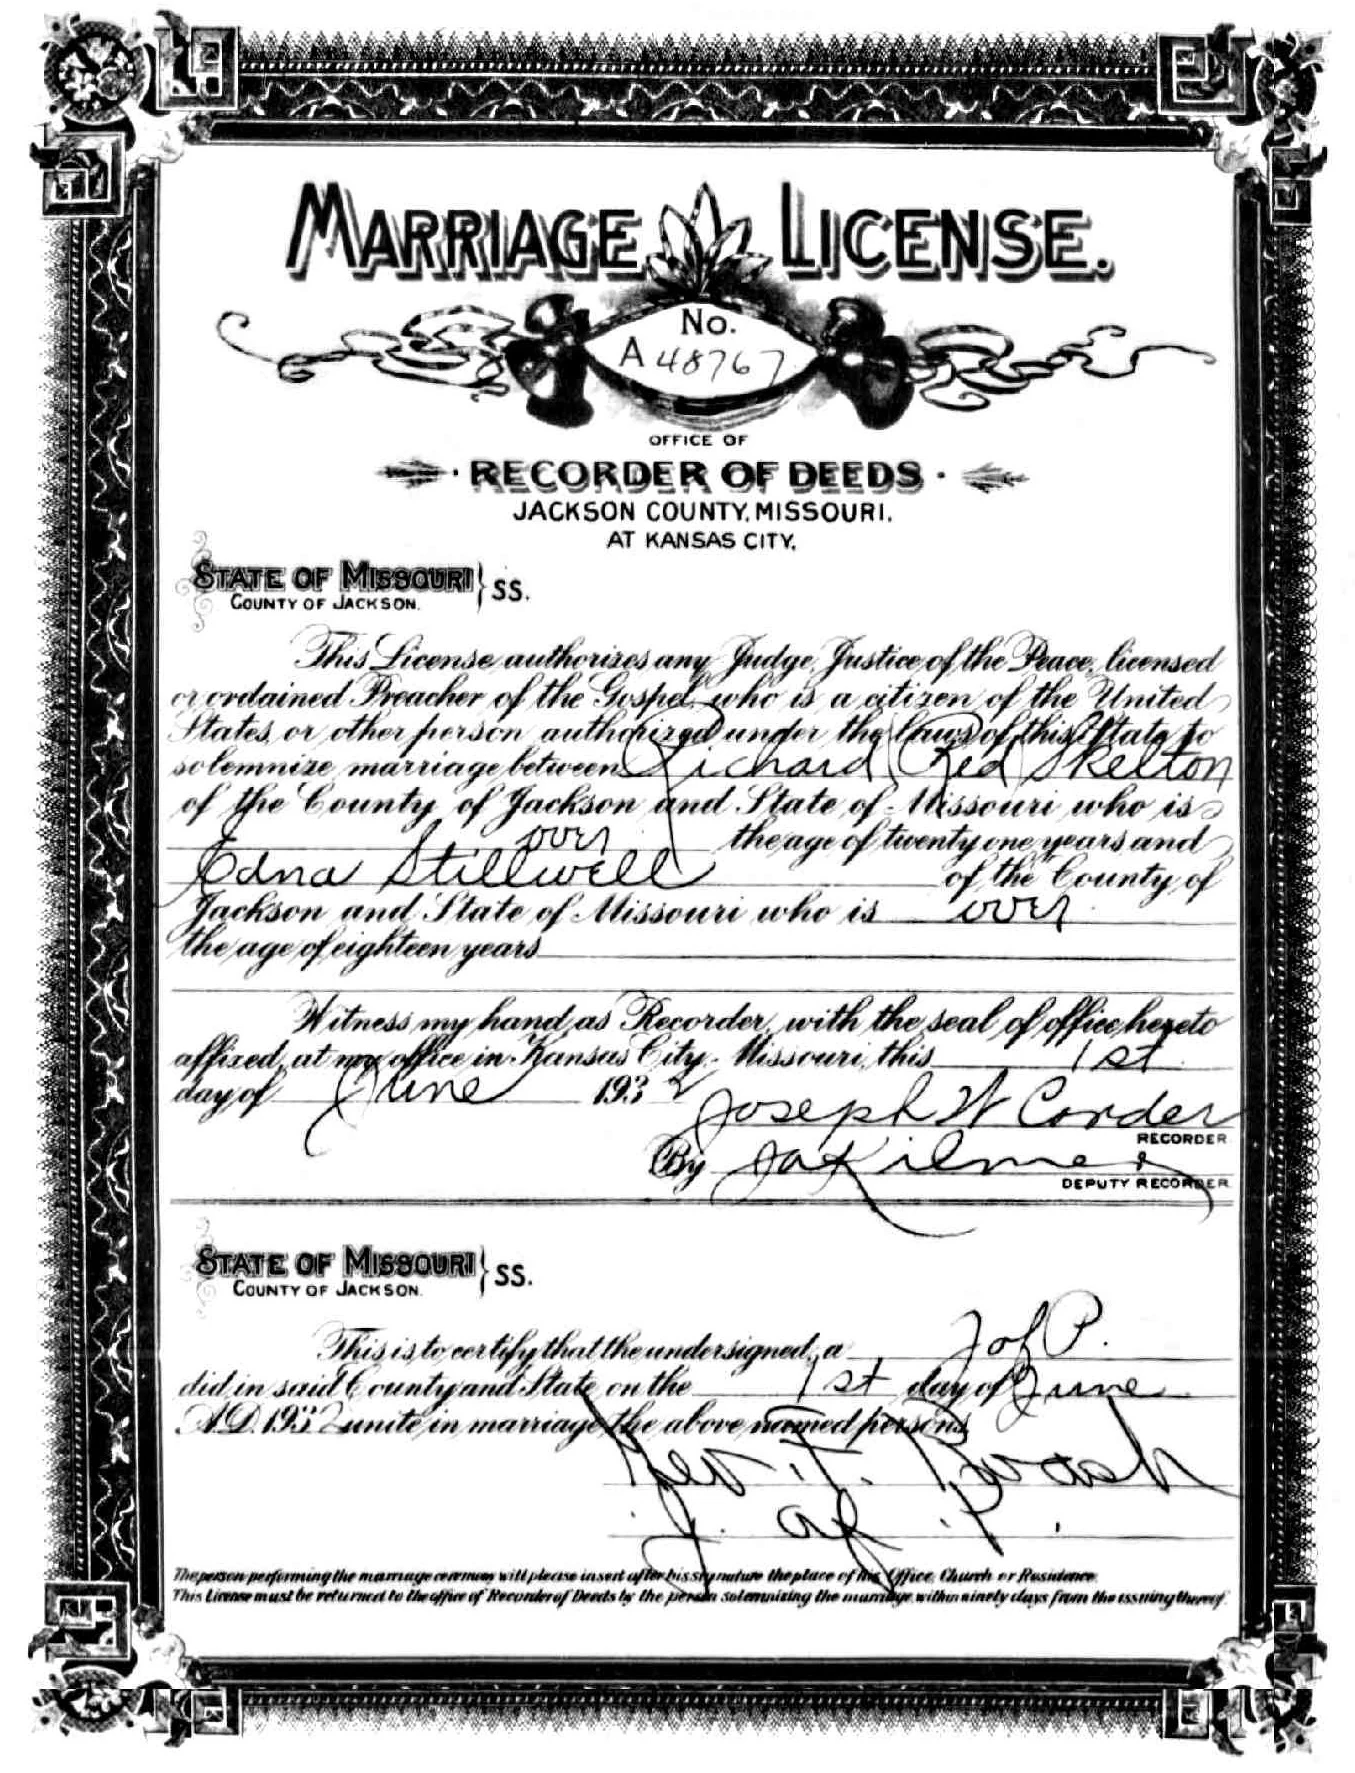 MARRIAGE LICENSE.
No.
A 48767
OFFICE OF
RECORDER OF DEEDS
JACKSON COUNTY, MISSOURI.
AT KANSAS CITY.
STATE OF MISSOURI } SS.
COUNTY OF JACKSON.
This License authorizes any Judge, Justice of the Peace, licensed
or ordained Preacher of the Gospel, who is a citizen of the United
States, or other person authorized under the laws of this State to
solemnize marriage between Richard (Red) Skelton
of the County of Jackson and State of Missouri who is
over the age of twenty one years and
Edna Stillwell of the County of
Jackson and State of Missouri who is over
the age of eighteen years
Witness my hand as Recorder, with the seal of office hereto
affixed, at my office in Kansas City, Missouri, this 1st
day of June 1932
Joseph W Corder
RECORDER
By J A Kilmer
DEPUTY RECORDER
STATE OF MISSOURI } SS.
COUNTY OF JACKSON.
This is to certify that the undersigned, a J of P.
did in said County and State on the 1st day of June
A.D. 1932 unite in marriage the above named persons
F.
J. of P.
The person performing the marriage ceremony will please insert after his signature the place of his Office, Church or Residence.
This License must be returned to the office of Recorder of Deeds by the person solemnizing the marriage within ninety days from the issuing thereof.